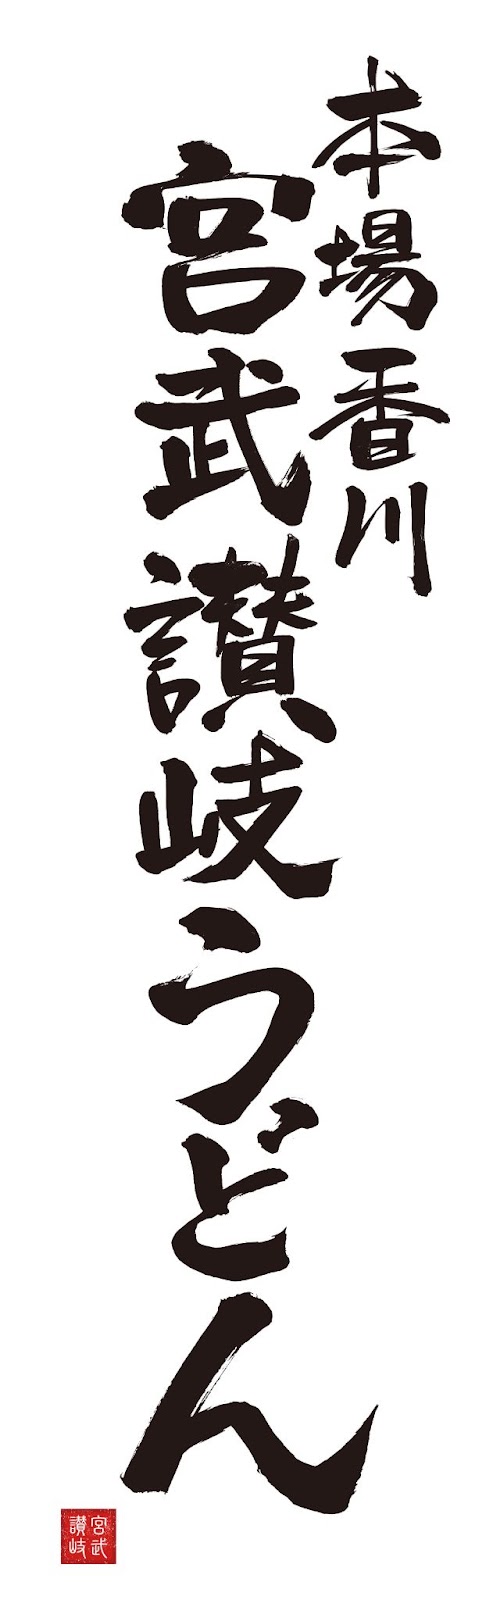 本場香川
宮武讃岐うどん
宮武
讃岐